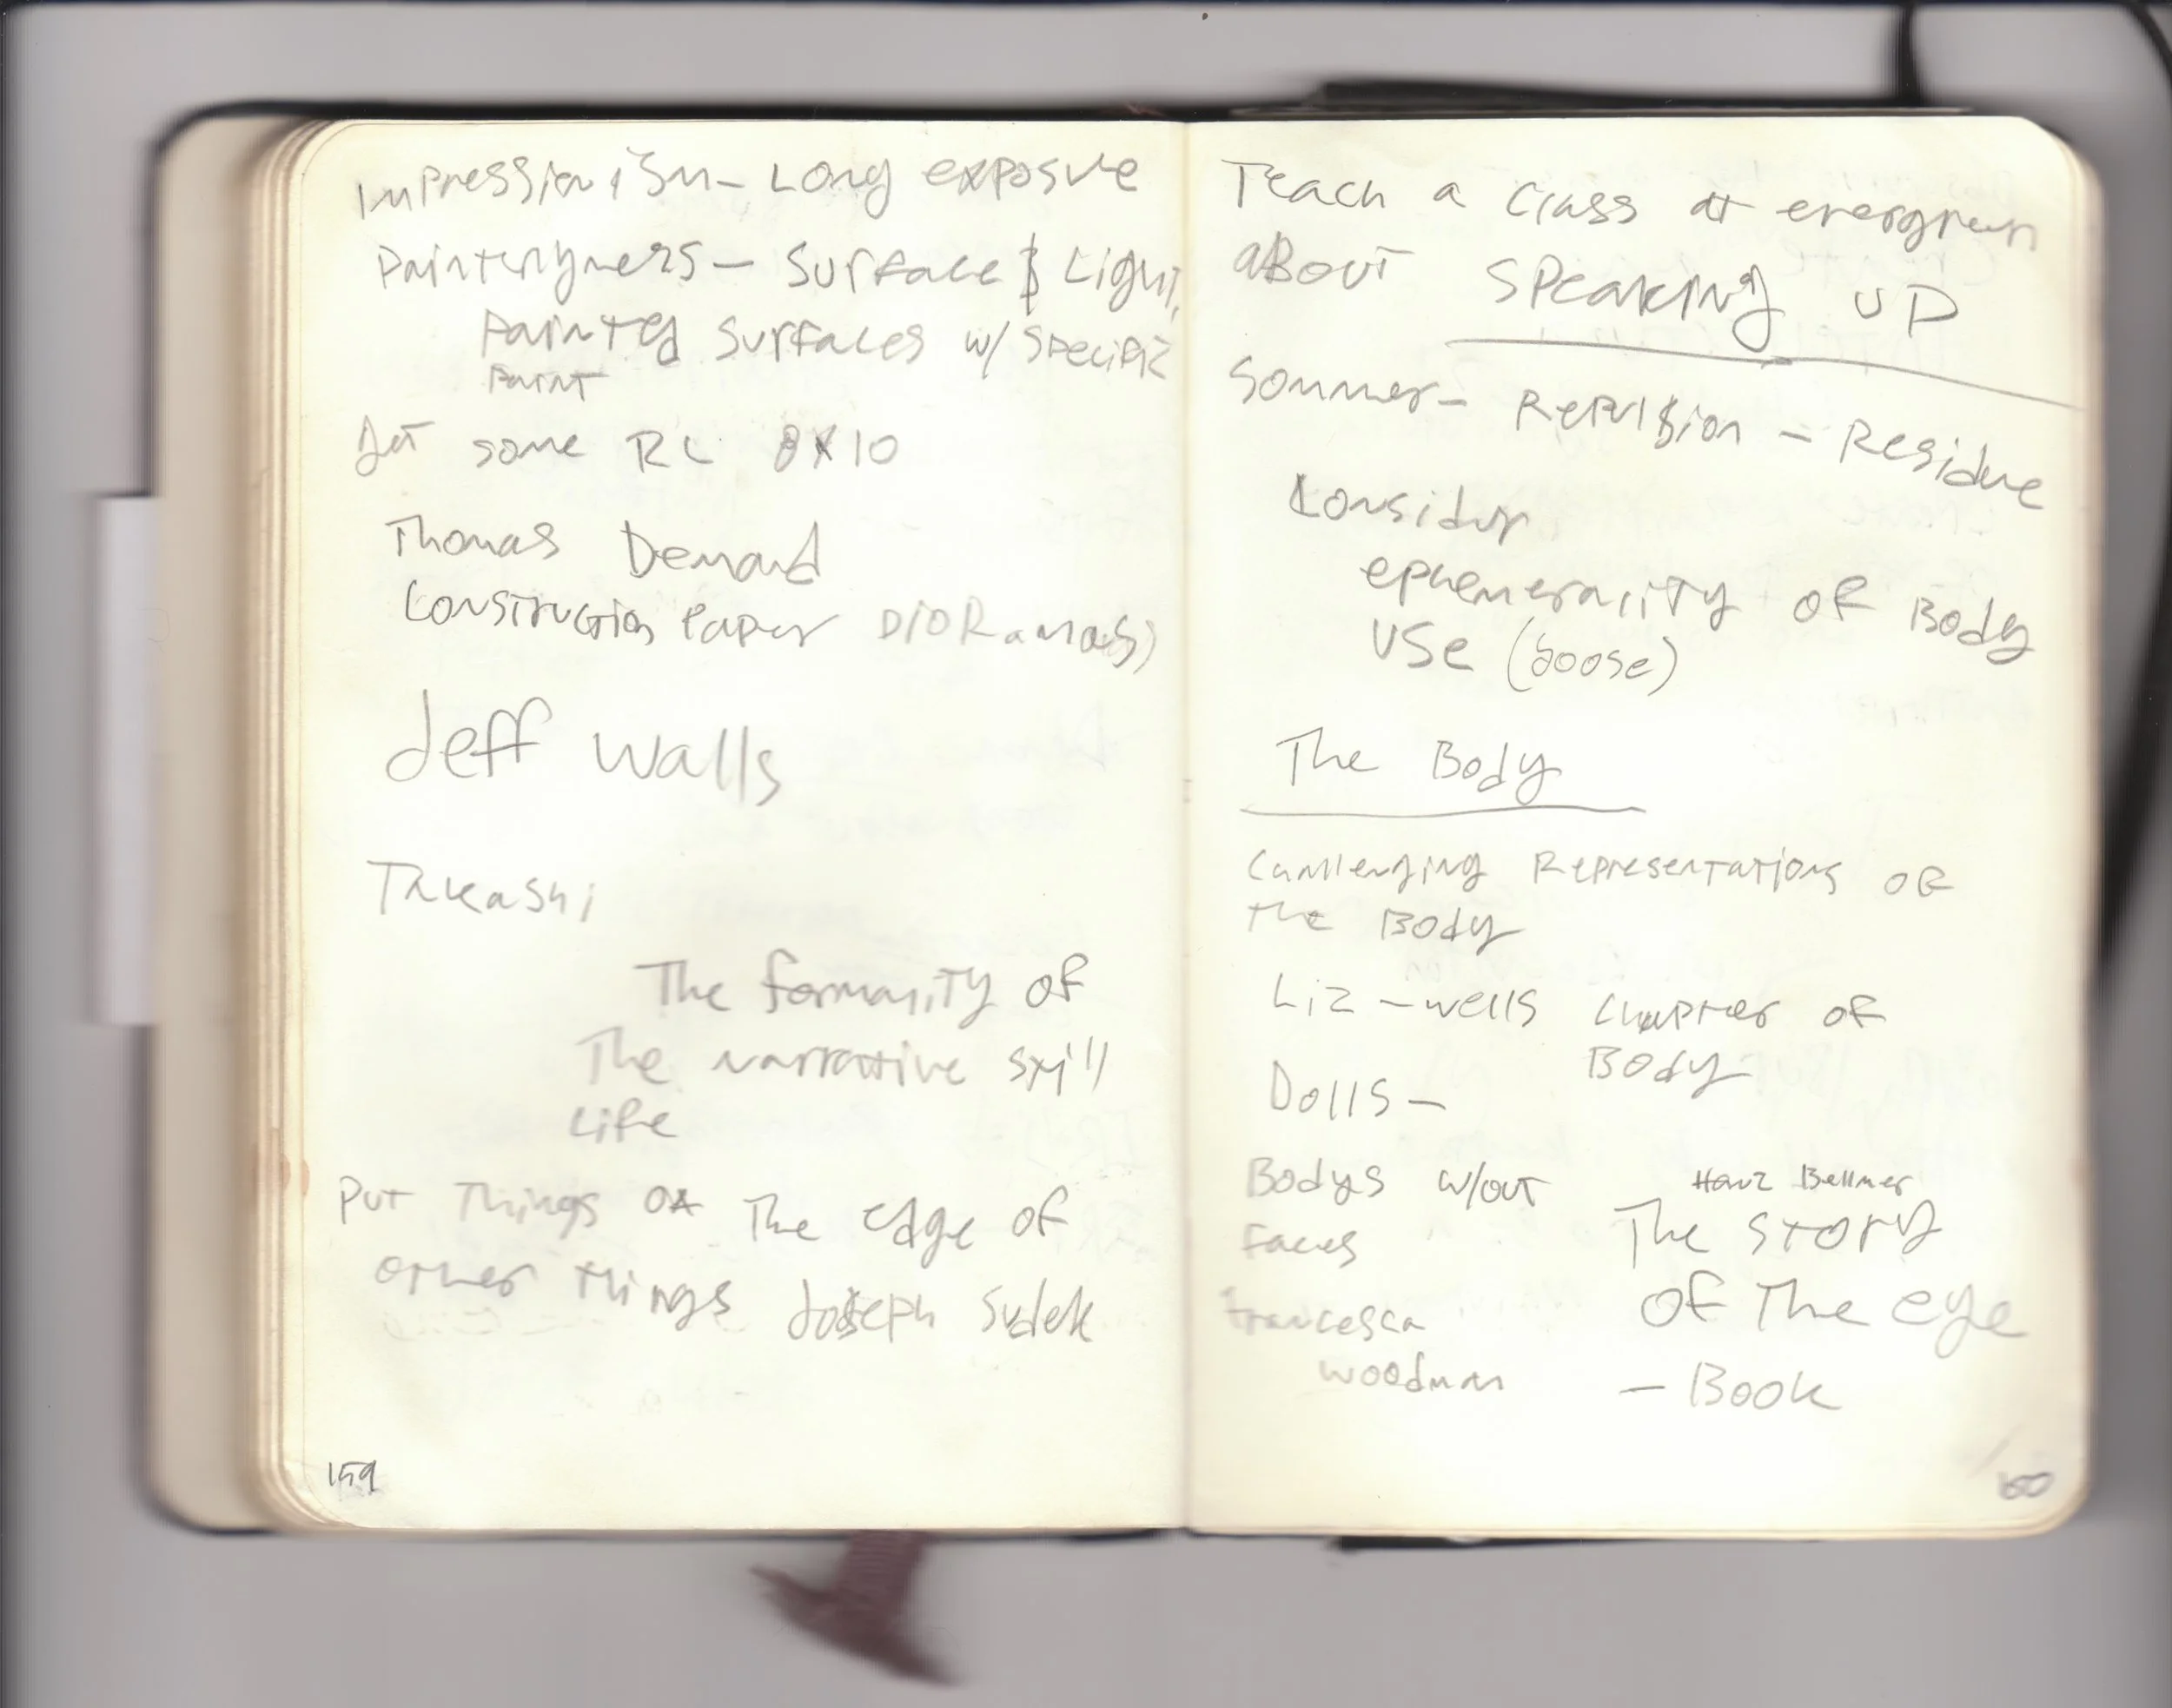 Impressionism - Long exposure
Painterlyness - Surface & Light,
painted surfaces w/ specific
paint
Get some RC 8x10
Thomas Demand
Construction Paper DIORamas)
Jeff Walls
Takashi
The formality of
The narrative still
Life
Put Things on The edge of
other things Joseph Sudek
159
Teach a class at evergreen
aBout Speaking UP
Sommer - Repulsion - Residue
Consider
ephemerality of Body
USe
The Body
Challenging Representations of
the Body
Liz - wells Chapter of
Body
Dolls -
Bodys w/out
Faces
Francesca
Woodman
Hanz Bellmer
The Story
Of The eye
- Book
160